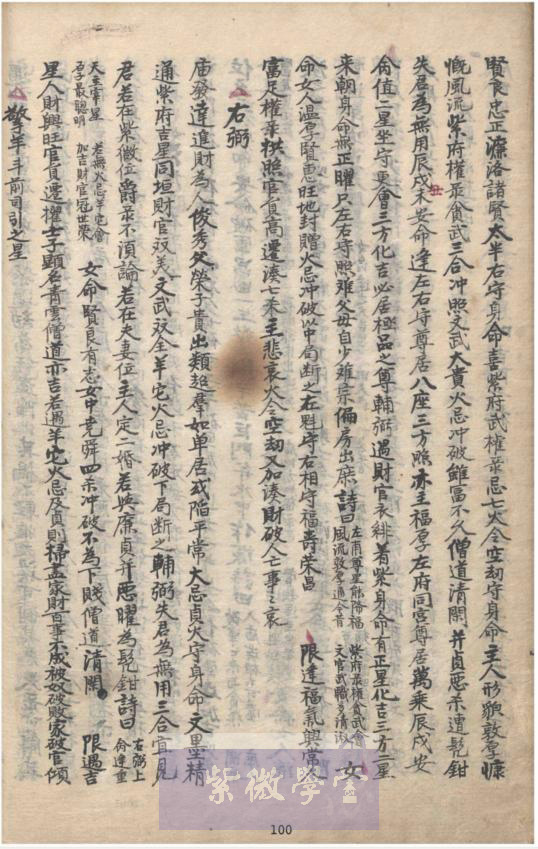 賢良忠正濂洛諸賢太半右守身命喜紫府武權彔忌七火令空劫守身命主人形貌敦羣慷
慨風流紫府權彔貪武三合冲照文武大貴火忌冲破雖富不久僧道清閑并貞惡杀遭髡鉗
失君為無用辰戌丑未安命逢左右守尊居八座三方照亦主福厚左府同宮尊居萬乘辰戌安
命值二星坐守更會三方化吉必居極品之尊輔弼遇財官衣緋着紫身命有正星化吉三方二星
來朝身命無正曜只左右守照難父母自少难宗偏房出庶詩曰左甫尊星能降福風流敦厚通今昔紫府彔權貪武會文官武職多清 女
命女人溫厚賢惠旺地封贈火忌冲破以中局断之在魁守右相守福壽荣昌 限逢福氣興常
富足權彔拱照官員高遷湊七杀主悲哀火令空劫又加湊財破人亡事之哀
右弼
庙發達進財為人俊秀父荣子貴出類超羣如单居或陷平常大忌貞火守身命文墨精
通紫府吉星同垣財官双美文武双全羊它火忌冲破下局断之輔弼失君為無用三合宜見
君若在紫微位爵彔不湏論若在夫妻位主人定二婚若與廉貞并惡曜為髡鉗詩曰右弼上命逢重
天主宰星孕最聰明若無火忌羊它會加吉財官冠世荣 女命賢良有志女中堯舜四杀冲破不為下賤僧道清閑 限遇吉
星人財興旺官員遷擢士子顕名青雲僧道亦吉若遇羊它火忌及貞則掃盡家財百事不成被奴破敗家破官傾
擎羊斗前司引之星
紫微學堂
100